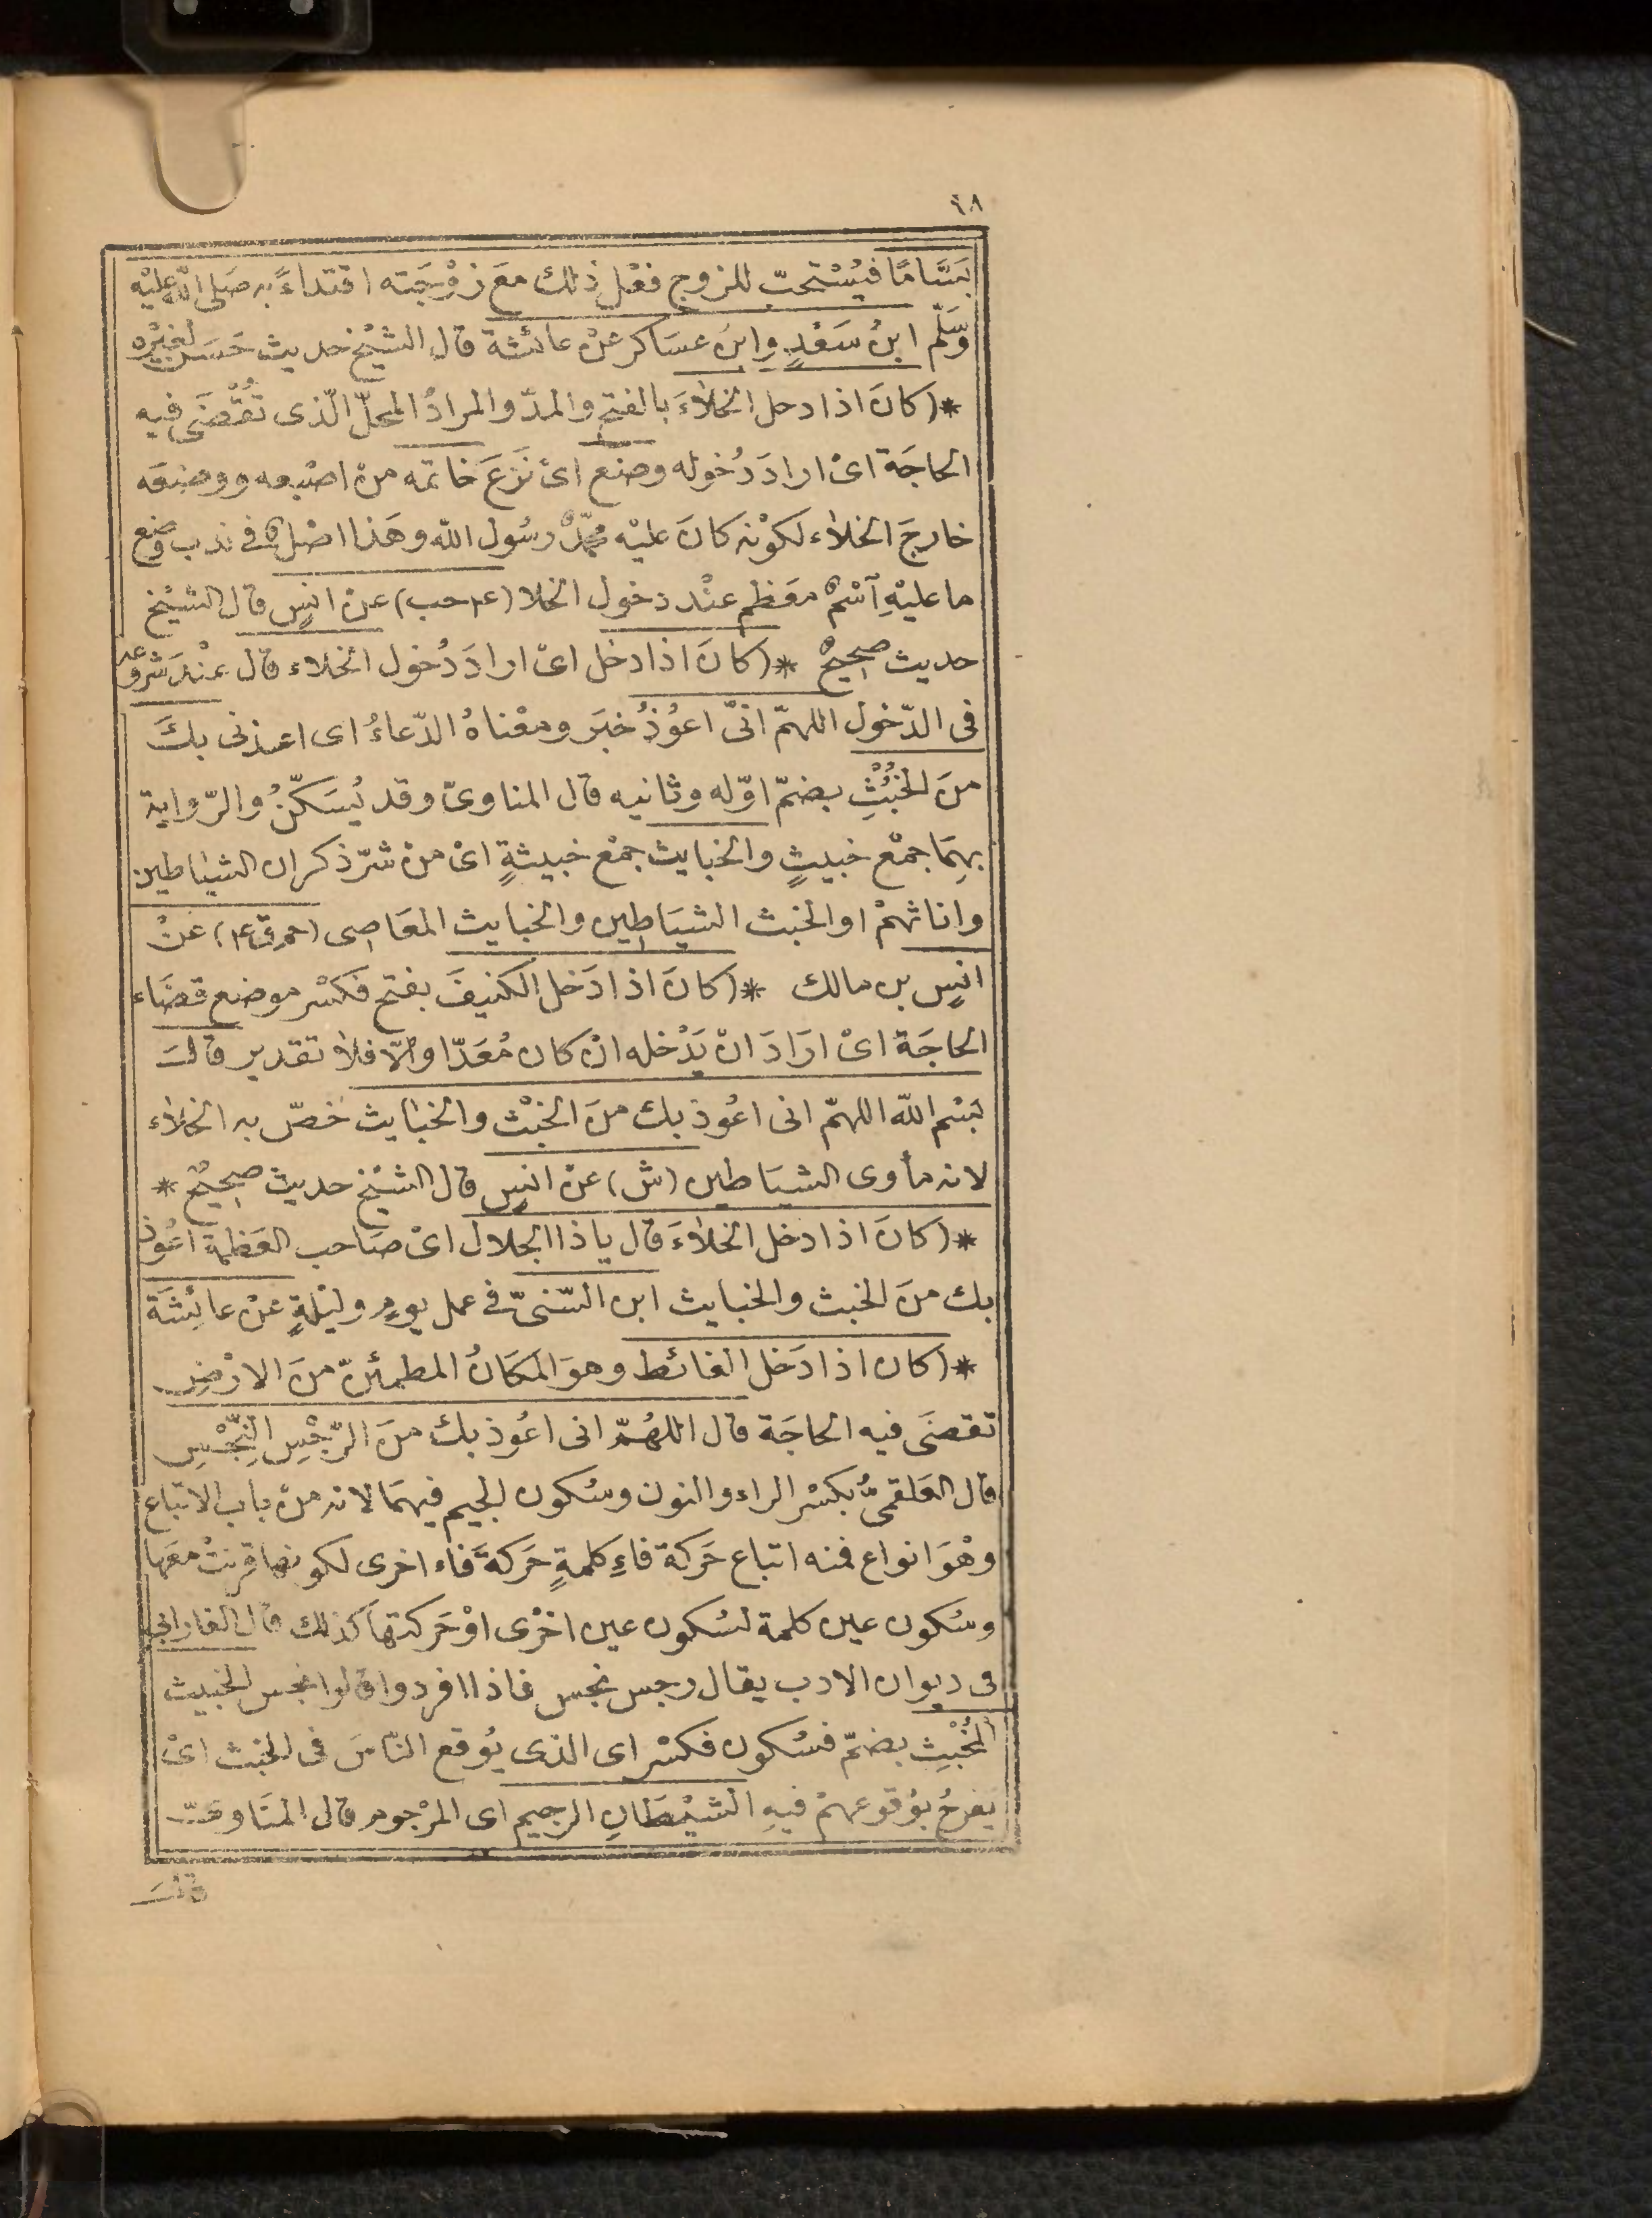 ٦٨
بَسَّامًا فيُسْتحبّ للزوج فعْل ذلك معَ زوْجَته اقتداءً به صَلى الله عليْه
وسَلّم ابنُ سَعْدٍ وابنُ عسَاكر عنْ عائشة قال الشيْخ حديث حَسَن لغيْره
*(كانَ اذا دخل الخلاءَ بالفتح والمدّ والمرادُ المحلّ الّذى تُقْضَى فيه
الحاجَة اىْ ارادَ دُخوله وضع اىْ نَزَعَ خاتمه منْ اصْبعه ووضعَه
خارجَ الخلاء لكوْنه كانَ عليْه محمّدٌ رسُول الله وهَذا اصْلٌ فى ندب وضع
ما عليْهِ آسْمٌ معَظم عنْد دخول الخلا (٤ حب) عنْ انسٍ قال الشيْخ
حديث صحيحٌ *(كانَ اذا دخل اىْ ارادَ دُخول الخلاء قال عنْدَ شروعه
فى الدّخول اللهمّ انىّ اعُوْذُ خبَر ومعْناهُ الدّعاءُ اى اعذنى بكَ
منَ الخُبُثِ بضمّ اوّله وثانيه قال المناوىّ وقد يُسَكّنُ والرّواية
بهمَا جمْع خبيثٍ والخبايث جمْع خبيثةٍ اىْ منْ شرّ ذكران الشيَاطين
واناثهمْ او الخبث الشيَاطين والخبايث المعَاصِى (حم ق ٤) عنْ
انسٍ بن مالك *(كانَ اذا دَخل الكنيفَ بفتح فكسْر موضع قضَاء
الحاجَة اىْ ارَادَ انْ يَدْخله انْ كان مُعَدّا والّا فلا تقدير قالَ
بسْم الله اللهمّ انى اعُوذ بك منَ الخبْث والخبَايث خصّ به الخلاء
لانه مأوى الشيَاطين (ش) عنْ انسٍ قال الشيْخ حديث صحيحٌ *
*(كانَ اذا دخل الخلاءَ قال ياذا الجلال اىْ صَاحب العَظمة اعُوذ
بك منَ الخبث والخبايث ابن السّنىّ فى عمل يومٍ وليْلةٍ عنْ عائِشَة
*(كان اذا دَخل الغائط وهوَ المكَانُ المطمئنّ منَ الارْضِ
تقضَى فيه الحاجَة قال اللهُمّ انى اعُوذ بكَ منَ الرّجْسِ النّجْسِ
قال العَلقمىّ بكسْر الراء والنون وسُكون الجيم فيهمَا لانه منْ باب الاتباع
وهْوَ انواع فمنه اتباع حَركة فاءِ كلمةٍ حَركةَ فاء اخرى لكونها قرنتْ معَها
وسُكون عين كلمة لسُكون عين اخْرى اوْ حَركتها كذلك قال الفارابى
فى ديوان الادب يقال رجس نجس فاذا افردوا قالوا نجس الخبيث
المُخْبِثِ بضمّ فسُكون فكسْر اى الذى يُوقع النّاسَ فى الخبث اىْ
يفرحُ بوُقوعهمْ فيهِ الشيْطَانِ الرجيم اى المرْجوم قال المنَاوىّ
قالَ